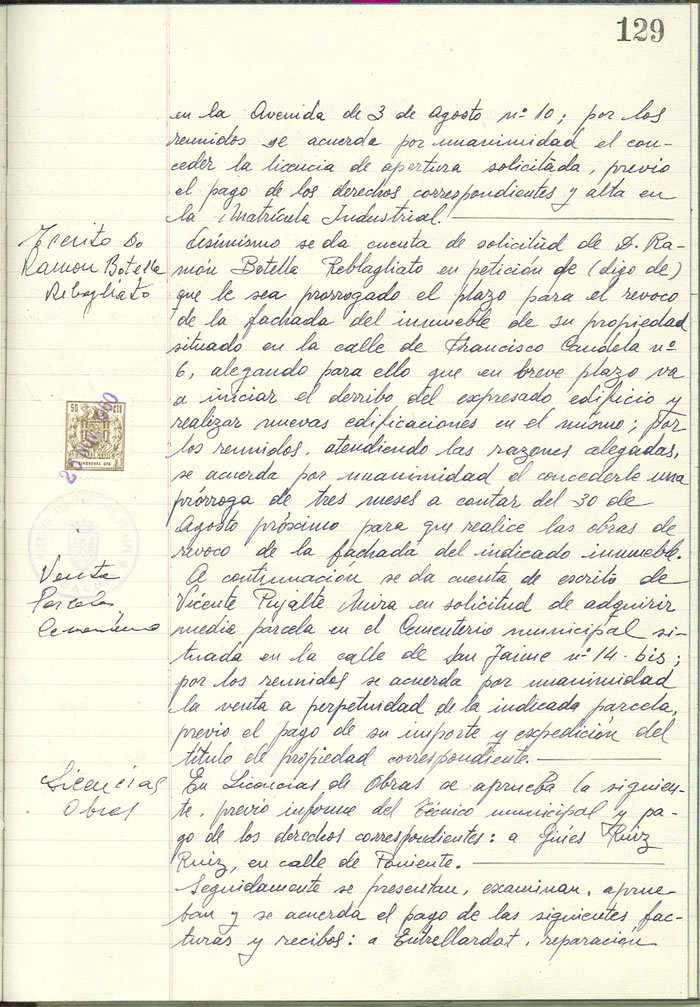 129
en la Avenida de 3 de Agosto nº 10; por los
reunidos se acuerda por unanimidad el con-
ceder la licencia de apertura solicitada, previo
el pago de los derechos correspondientes y alta en
la Matrícula Industrial.
Escrito Do
Ramon Botella
Rebagliato
Asimismo se da cuenta de solicitud de D. Ra-
món Botella Reblagliato en petición de (digo de)
que le sea prorrogado el plazo para el revoco
de la fachada del inmueble de su propiedad
situado en la calle de Francisco Candela nº
6, alegando para ello que en breve plazo va
a iniciar el derribo del expresado edificio y
realizar nuevas edificaciones en el mismo; por
los reunidos, atendiendo las razones alegadas,
se acuerda por unanimidad el concederle una
prórroga de tres meses a contar del 30 de
Agosto próximo para que realice las obras de
revoco de la fachada del indicado inmueble.
50 CTS
CINCUENTA CTS
Venta
Parcela
Cementerio
A continuación se da cuenta de escrito de
Vicente Pujalte Mira en solicitud de adquirir
media parcela en el Cementerio municipal si-
tuada en la calle de San Jaime nº 14-bis;
por los reunidos se acuerda por unanimidad
la venta a perpetuidad de la indicada parcela,
previo el pago de su importe y expedición del
título de propiedad correspondiente.
Licencias
Obras
En Licencias de Obras se aprueba la siguien-
te, previo informe del Técnico municipal y pa-
go de los derechos correspondientes: a Ginés Ruiz
Ruiz, en calle de Poniente.
Seguidamente se presentan, examinan, aprue-
ban y se acuerda el pago de las siguientes fac-
turas y recibos: a Entrellardat, reparación